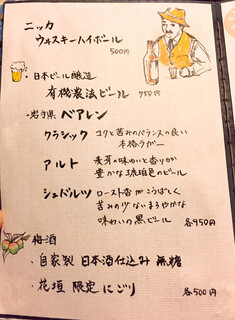 ニッカ
ウィスキーハイボール
500円
・日本ビール醸造
有機農法ビール 750円
・岩手県 ベアレン
クラシック コクと苦みのバランスの良い
本格ラガー
アルト 麦芽の味わいと香りが
豊かな琥珀色のビール
シュバルツ ロースト香がこうばしく
苦みの少ないまろやかな
味わいの黒ビール 各950円
梅酒
・自家製 日本酒仕込み 無糖
・花垣 限定 にごり 各500円